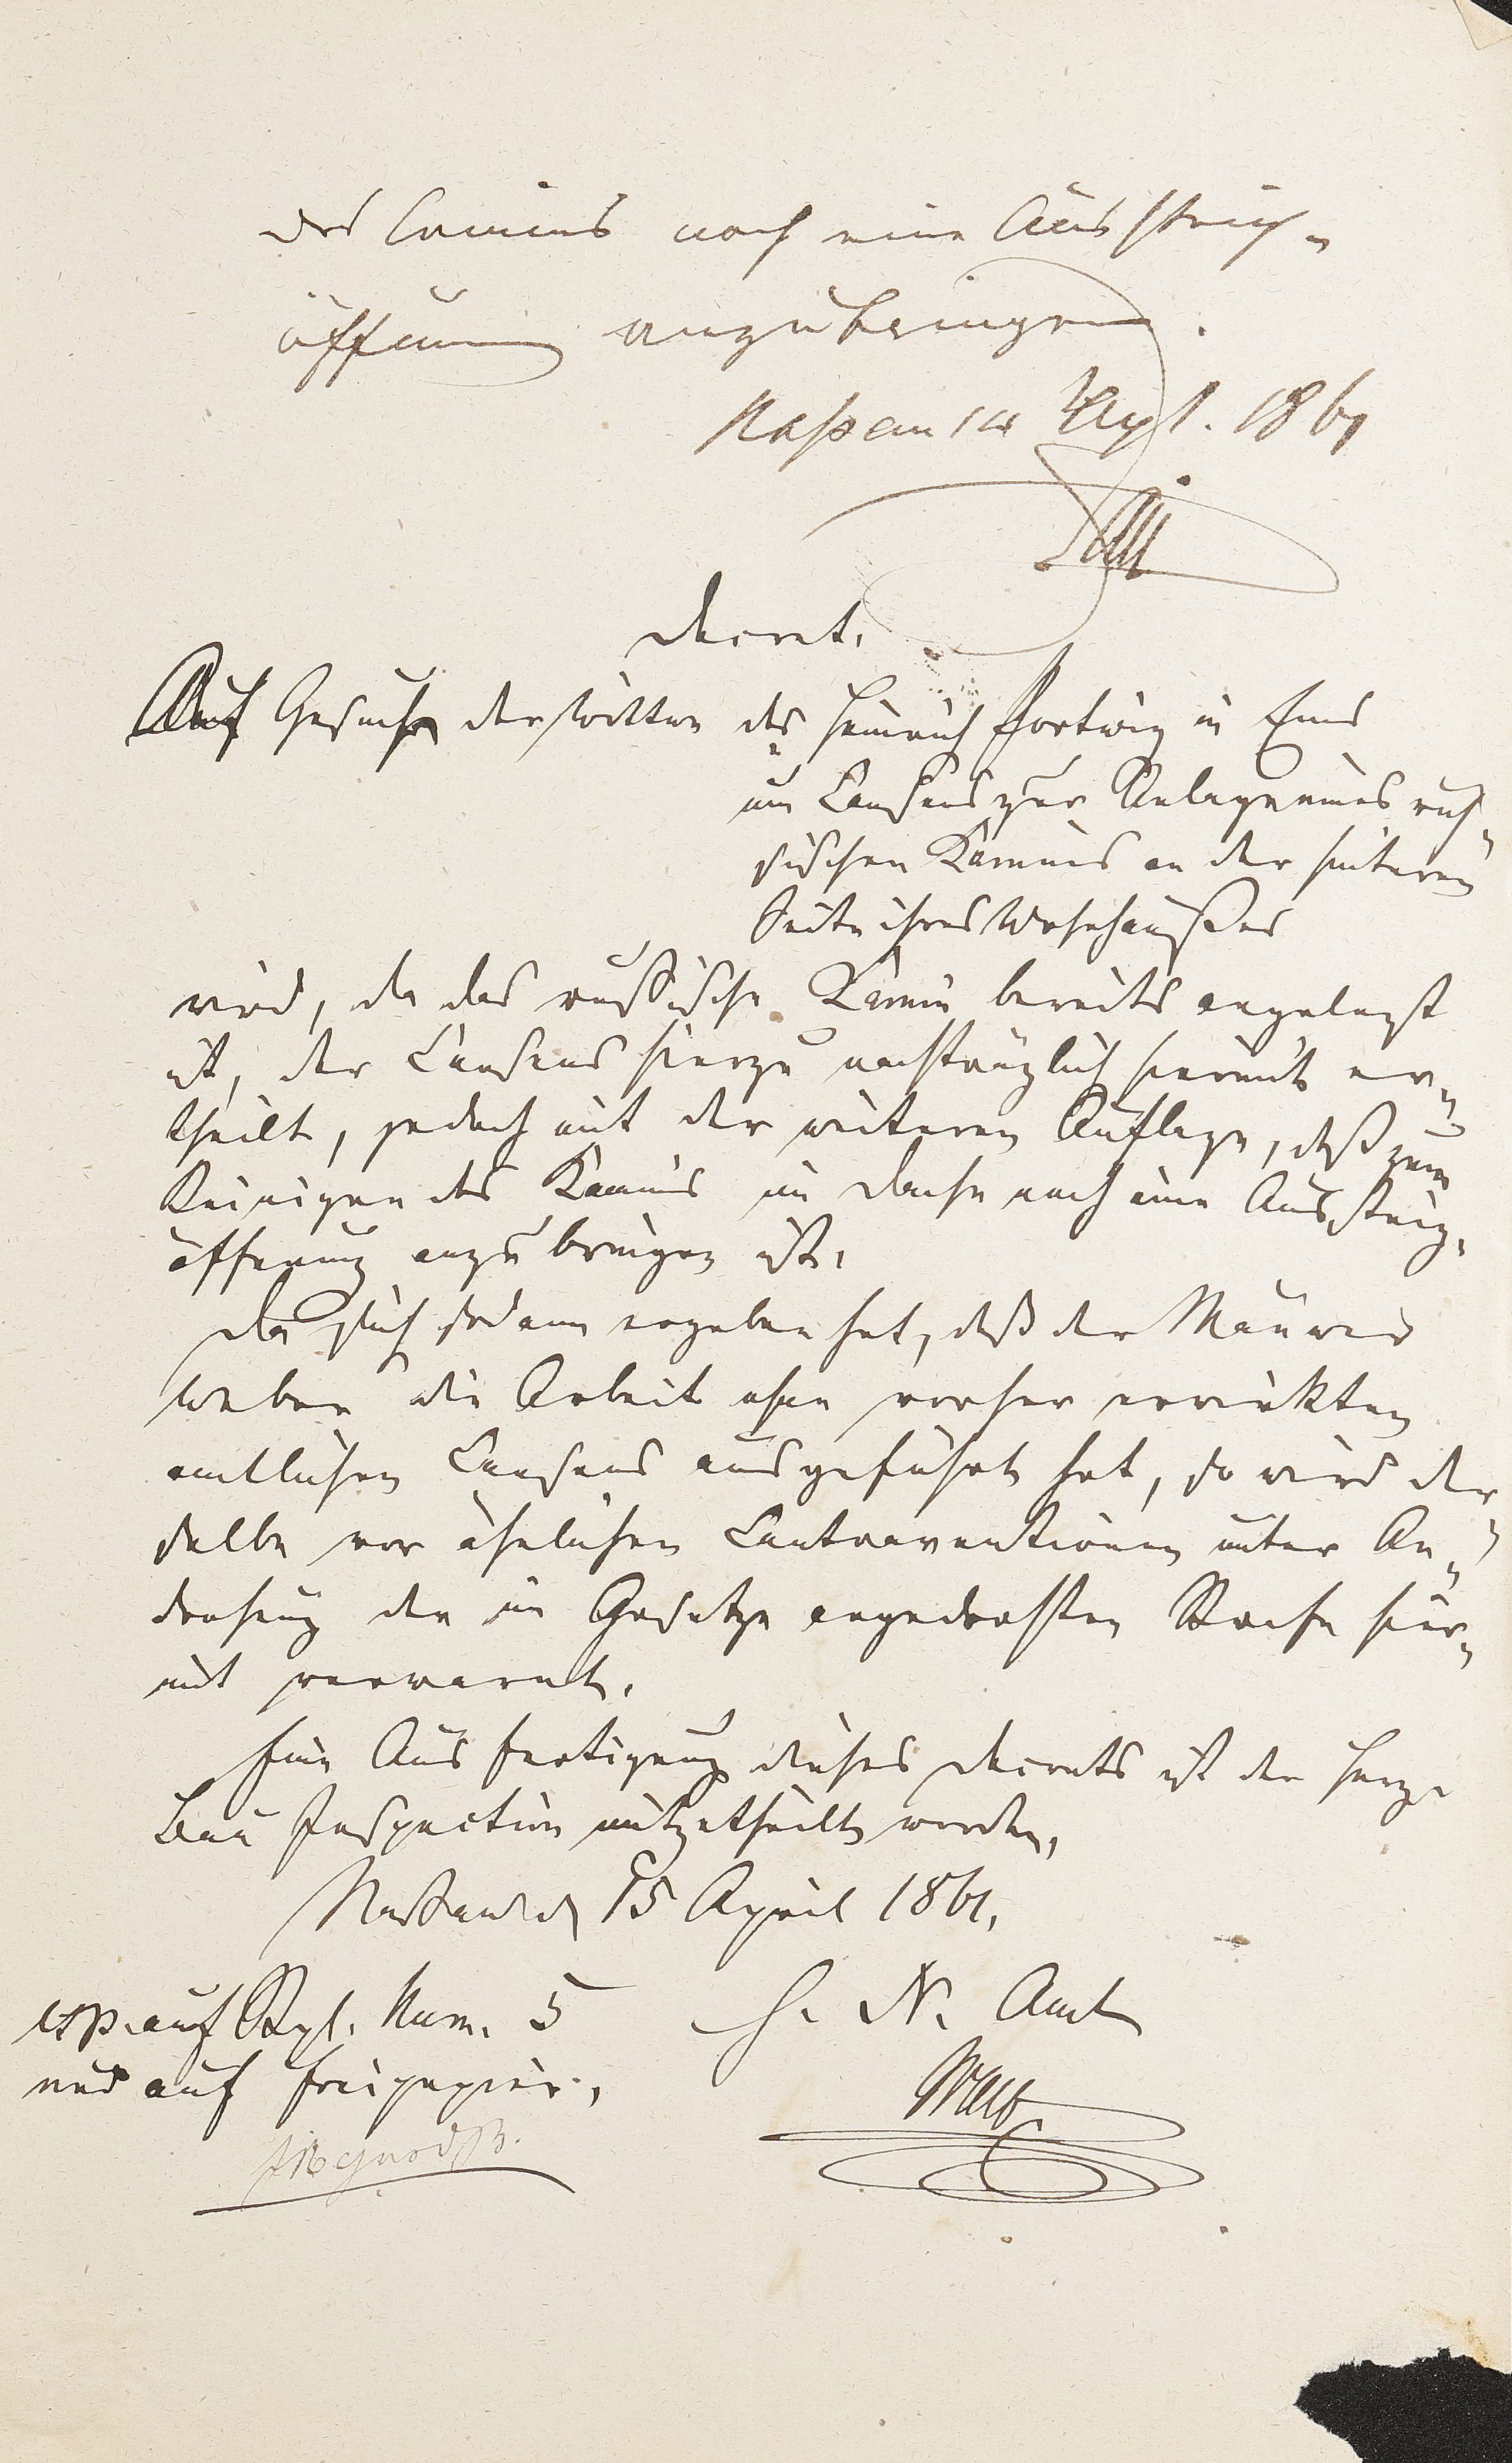 des Camins noch eine Aussteig-
öffnung anzubringen.
Nassau 14 Apl. 1861
Decret.
Auf Gesuch der Wittwe des Heinrich Fortwig in Ems
um Consens zur Anlage eines rus-
sischen Kamins an der hinteren
Seite ihres Wohnhauses
wird, da das russische Kamin bereits angelegt
ist, der Consens hierzu nachträglich hiermit er-
theilt, jedoch mit der weiteren Auflage, daß zum
Reinigen des Kamins im Dache noch eine Aussteig-
öffnung anzubringen ist.
Da sich sodann ergeben hat, daß der Maurer
Weber die Arbeit ohne vorher erwirkten
amtlichen Consens ausgeführt hat, so wird der-
selbe vor ähnlichen Contraventionen unter An-
drohung der im Gesetze angedrohten Strafe hier-
mit verwarnt.
Eine Ausfertigung dieses Decrets ist der Herz.
Bau Inspection mitgetheilt worden.
Nassau d 15 April 1861.
exp. auf Stpl. Num. 5 H. N. Amt
und auf Freipapier.